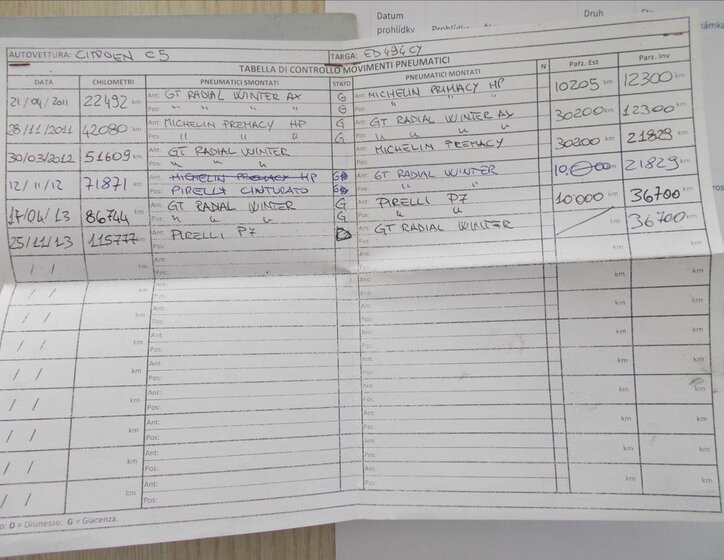 Datum
prohlídky
Druh
AUTOVETTURA: CITROEN C5 TARGA: ED494CY
TABELLA DI CONTROLLO MOVIMENTI PNEUMATICI
DATA CHILOMETRI PNEUMATICI SMONTATI STATO PNEUMATICI MONTATI N Parz. Est Parz. Inv
21/04/2011 22492 km Ant: GT RADIAL WINTER AX G Ant: MICHELIN PRIMACY HP 10205 km 12300 km
Pos: " " " G Pos: " "
28/11/2011 42080 km Ant: MICHELIN PREMACY HP G Ant: GT RADIAL WINTER AX 30200 km 12300 km
Pos: " " " G Pos: " " "
30/03/2012 51609 km Ant: GT RADIAL WINTER G MICHELIN PREMACY 30200 km 21829 km
Pos: " " "
12/11/12 71871 km Ant: MICHELIN PREMACY HP G Ant: GT RADIAL WINTER km 21829 km
Pos: PIRELLI CINTURATO G Pos: " "
17/04/13 86744 km Ant: GT RADIAL WINTER G Ant: PIRELLI P7 10000 km 36700 km
Pos: " " " G Pos: " "
25/11/13 115777 km Ant: PIRELLI P7 D Ant: GT RADIAL WINTER km 36700 km
Pos: Pos:
/ / km Ant: Ant: km km
Pos: Pos:
/ / km Ant: Ant: km km
Pos: Pos:
/ / km Ant: Ant: km km
Pos: Pos:
/ / km Ant: Ant: km km
Pos: Pos:
/ / km Ant: Ant: km km
Pos: Pos:
/ / km Ant: Ant: km km
Pos: Pos:
/ / km Ant: Ant: km km
Pos: Pos:
/ / km Ant: Ant: km km
Pos: Pos:
/ / km Ant: Ant: km km
Pos: Pos:
D = Dismesso; G = Giacenza.